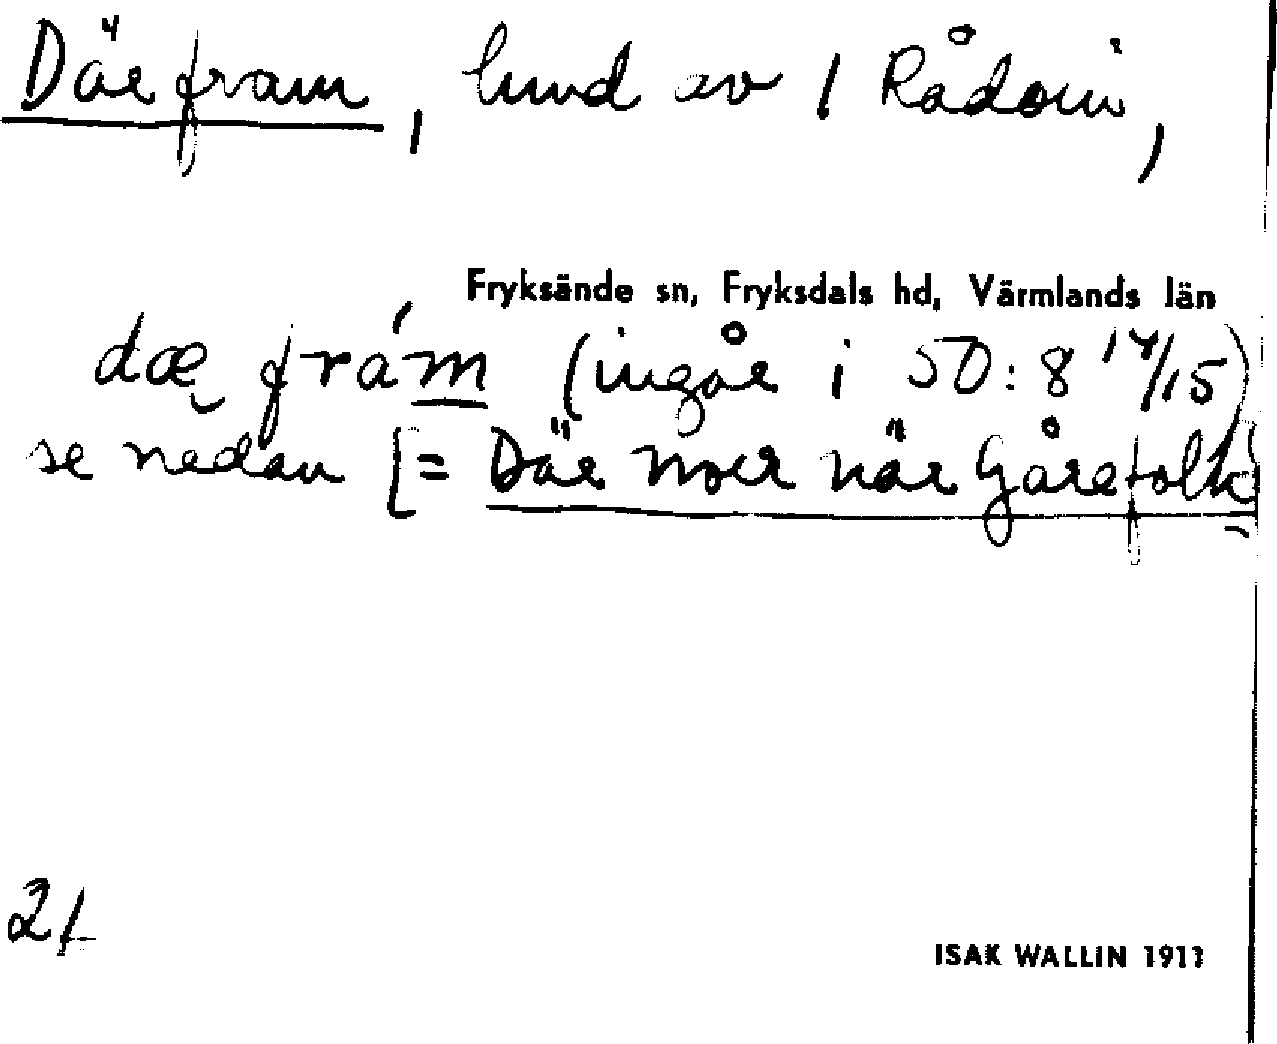 Där fram, lund av 1 Rådom,
Fryksände sn, Fryksdals hd, Värmlands län
dæ fram (ingår i 50:8 14/15)
se nedan [= Där norr när Gårefolk
21
ISAK WALLIN 1911